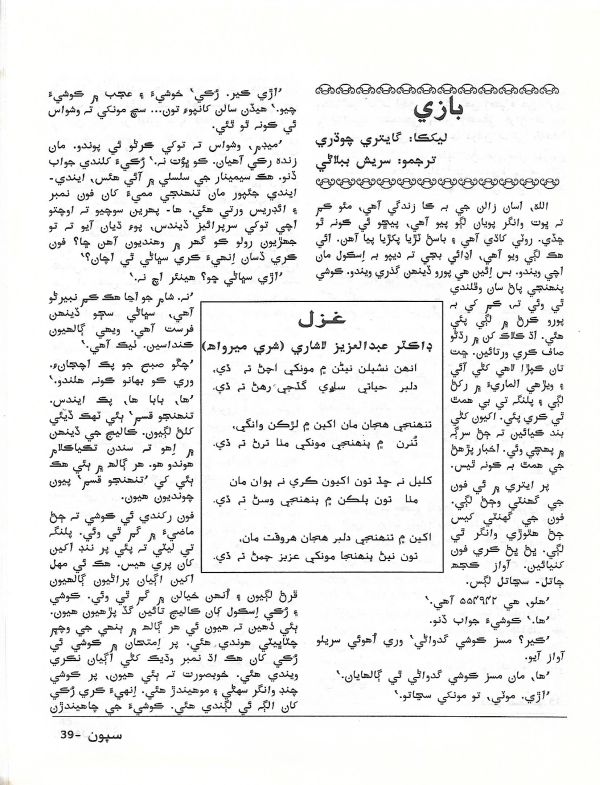 بازي
ليکڪا: گايتري چوڌري
ترجمو: سريش ببلاڻي
الله، اسان زالن جي به ڪا زندگي آهي، مئو ڪم
ته ڀوت وانگر پويان لڳو پيو آهي، پيڇو ئي ڪونه ٿو
ڇڏي. روٽي کاڌي آهي ۽ باسڻ ٽڙيا پکڙيا پيا آهن. اڻي
هڪ لڳي ويو آهي، اڍائي بجي ته ديپو به اسڪول مان
اچي ويندو. بس ائين هي پورو ڏينهن گذري ويندو. ڪوشي
پنهنجي پاڻ سان
ٿي وئي ته، ڪم کي به
پورو ڪرڻ ۾ لڳي پئي
هئي. اڌ ڪلاڪ کن ۾ رڌڻو
صاف ڪري ورتائين. ڇت
تان ڪپڙا لاهي کڻي آئي
۽ ويڙهي الماريءَ ۾ رکڻ
لڳي ۽ پلنگ تي بي همٿ
ٿي ڪري پئي. اکيون کڻي
بند ڪيائين ته ڄڻ سرڳ
۾ پهچي وئي. اخبار پڙهڻ
جي همٿ به ڪونه ٿيس.
پر ايتري ۾ ئي فون
جي گهنٽي وڄڻ لڳي.
فون جي گهنٽي کيس
ڄڻ هٿوڙي وانگر ٿي
لڳي. ڀڻ ڀڻ ڪري فون
کنيائين. آواز ڪجهه
ڄاتل- سڃاتل لڳس.
’هلو، هي ۵۵۴۹۴۲ آهي.‘
’ها.‘ ڪوشيءَ جواب ڏنو.
’ڪير؟ مسز ڪوشي گدواڻي‘ وري اُهوئي سريلو
آواز آيو.
’ها، مان مسز ڪوشي گدواڻي ٿي ڳالهايان.‘
’اڙي. موٽي، تو مونکي سڃاتو.‘
’اڙي ڪير. رُڪي‘ خوشيءَ ۽ عجب ۾ ڪوشيءَ
چيو.‘ هيڏن سالن کانپوءِ تون... سچ مونکي ته وشواس
ئي ڪونه ٿو ٿئي.
’ميڊم، وشواس ته توکي ڪرڻو ئي پوندو. مان
زنده رُڪي آهيان. ڪو ڀوت نه.‘ رُڪيءَ کلندي جواب
ڏنو. هڪ سيمينار جي سلسلي ۾ آئي هئس، ايندي-
ايندي جئپور مان تنهنجي ممي کان فون نمبر
۽ ائڊريس ورتي هئي. ها- پهرين سوچيو ته اوچتو
اچي توکي سرپرائيز ڏيندس، پوءِ ڌيان آيو ته تو
جهڙيون رولو ڪو گهر ۾ وهنديون آهن ڇا؟ فون
ڪري ڏسان اِنهيءَ ڪري سڀاڻي ئي اچان؟‘
’اڙي سڀاڻي ڇو؟ هينئر اچ نه.‘
’نه. شام جو اڃا هڪ ڪم نبيرڻو
آهي، سڀاڻي سڄو ڏينهن
فرست آهي. ويهي ڳالهيون
ڪنداسين. ٺيڪ آهي.‘
’چڱو صبح جو پڪ اچجانءِ.
وري ڪو بهانو ڪونه هلندو.‘
’ها، بابا ها، پڪ ايندس.
تنهنجو قسم‘ ٻئي ٽهڪ ڏيئي
کلڻ لڳيون. ڪاليج جي ڏينهن
۾ اِهو ته سندن تڪيا ڪلام
هوندو هو. هر ڳالهه ۾ ٻئي هڪ
ٻئي کي ’تنهنجو قسم‘ پيون
چونديون هيون.
فون رکندي ئي ڪوشي ته ڄڻ
ماضيءَ ۾ گم ٿي وئي. پلنگ
تي ليٽي ته پئي پر ننڊ اکين
کان پري هيس. هڪ ئي مهل
اکين اڳيان پراڻيون ڳالهيون
ڦرڻ لڳيون ۽ اُنهن خيالن ۾ گم ٿي وئي. ڪوشي
۽ رُڪي اِسڪول کان ڪاليج تائين گڏ پڙهيون هيون.
ٻئي ذهين ته هيون ئي هر ڳالهه ۾ ٻنهي جي وچ۾
چٽاڀيٽي هوندي هئي. پر اِمتحان ۾ ڪوشي ئي
رُڪي کان هڪ اڌ نمبر وڌيڪ کڻي اڳيان نڪري
ويندي هئي. خوبصورت ته ٻئي هيون، پر ڪوشي
چنڊ وانگر سهڻي ۽ موهيندڙ هئي. اِنهيءَ ڪري رُڪي
کان الڳ ئي لڳندي هئي. ڪوشيءَ جي چاهيندڙن
غزل
ڊاڪٽر عبدالعزيز لاشاري (شري ميرواهه)
انهن نشيلن نيڻن ۾ مونکي اچڻ ته ڏي.
دلبر حياتي ساري گڏجي رهڻ ته ڏي.
تنهنجي هنجان مان اکين ۾ لڙڪن وانگي،
تُنرن ۾ پنهنجي مونکي مٺا ترڻ ته ڏي.
کلبل نه ڇڏ تون اکيون ڪري نه پوان مان
مٺا تون پلڪن ۾ پنهنجي وسڻ ته ڏي.
اکين ۾ تنهنجي دلبر هجان هروقت مان،
تون نيڻ پنهنجا مونکي عزيز چمڻ ته ڏي.
سپون -39